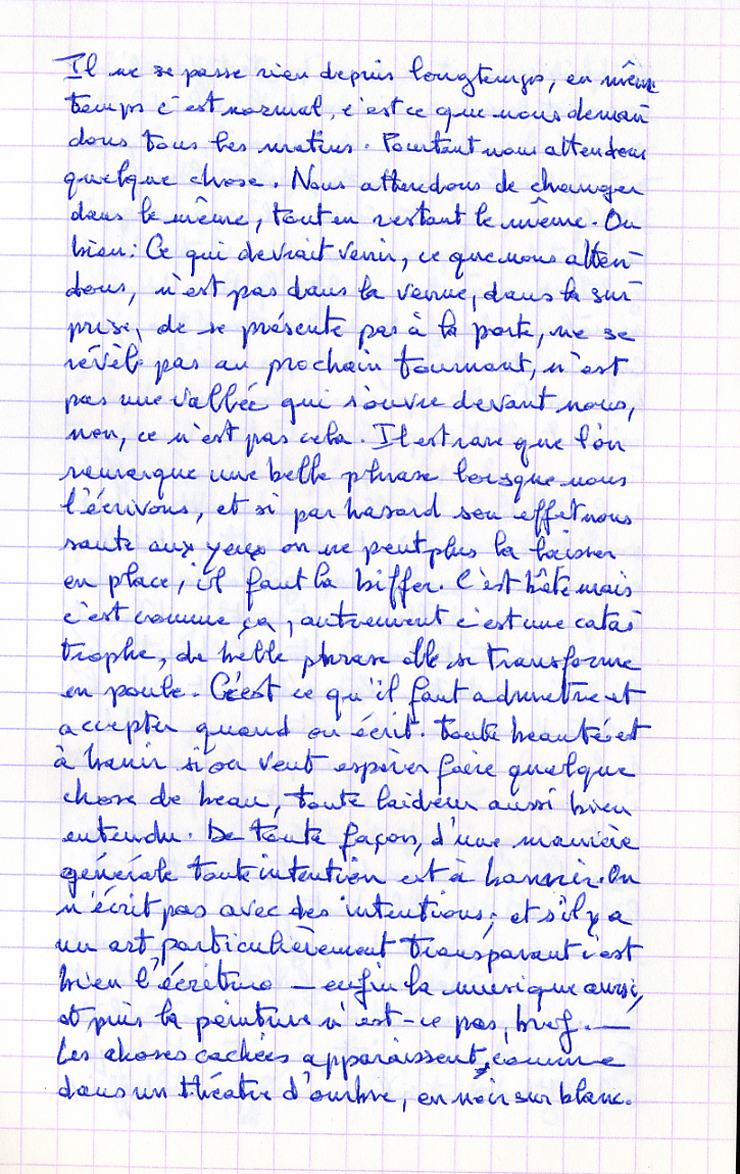 Il ne se passe rien depuis longtemps, en même
temps c'est normal, c'est ce que nous deman-
dons tous les matins. Pourtant nous attendons
quelque chose. Nous attendons de changer
dans le même, tout en restant le même. Ou
bien: Ce qui devrait venir, ce que nous atten-
dons, n'est pas dans la venue, dans la sur-
prise, de se présente pas à la porte, ne se
révèle pas au prochain tournant, n'est
pas une vallée qui s'ouvre devant nous,
non, ce n'est pas cela. Il est rare que l'on
remarque une belle phrase lorsque nous
l'écrivons, et si par hasard son effet nous
saute aux yeux on ne peut plus la laisser
en place, il faut la biffer. C'est bête mais
c'est comme ça, autrement c'est une catas-
trophe, de belle phrase elle se transforme
en poule. C'est ce qu'il faut admettre et
accepter quand on écrit. Toute beauté est
à banir si on veut espérer faire quelque
chose de beau, toute laideur aussi bien
entendu. De toute façon, d'une manière
générale toute intention est à bannir. On
n'écrit pas avec des intentions; et s'il y a
un art particulièrement transparant c'est
bien l'écriture — enfin la musique aussi,
et puis la peinture n'est-ce pas, bref. —
Les choses cachées apparaissent, comme
dans un théatre d'ombre, en noir sur blanc.